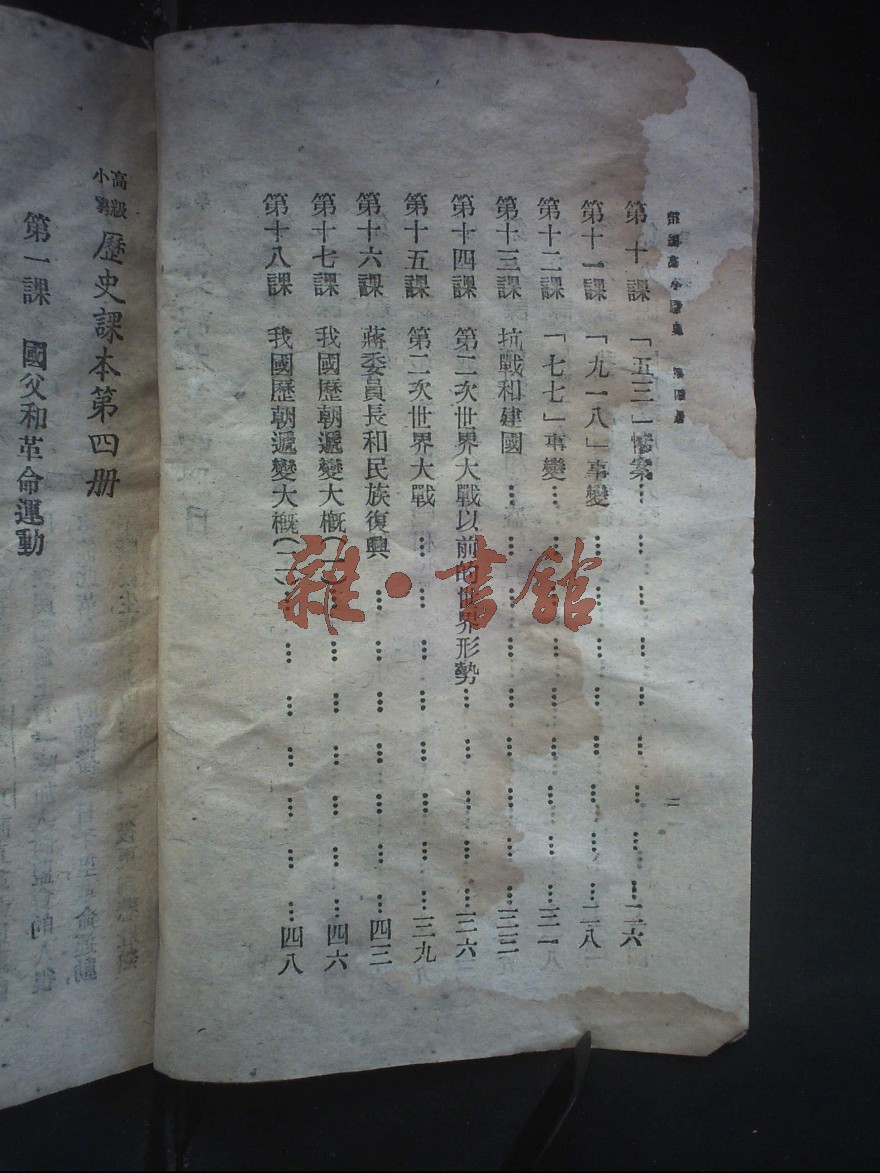 第十課 「五三」慘案 二六
第十一課 「九一八」事變 二八
第十二課 「七七」事變 三一
第十三課 抗戰和建國 三三
第十四課 第二次世界大戰以前的世界形勢 三六
第十五課 第二次世界大戰 三九
第十六課 蔣委員長和民族復興 四三
第十七課 我國歷朝遞變大概(一) 四六
第十八課 我國歷朝遞變大概(二) 四八
二
高級小學 歷史課本第四册
第一課 國父和革命運動
雜·書館